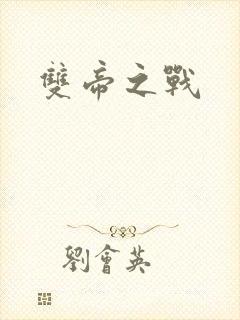 雙帝之戰
劉會英